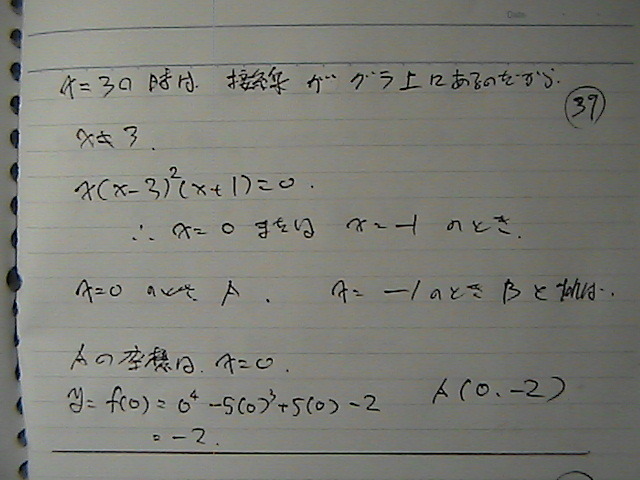 x=3の時は 接線 が グラ上にあるのだから.
39
x≠3.
x(x-3)²(x+1)=0.
∴ x=0 または x=-1 のとき.
x=0 のとき A. x=-1のとき B とすれば..
Aの座標は. x=0.
y=f(0)=0⁴-5(0)³+5(0)-2
A(0.-2)
=-2.